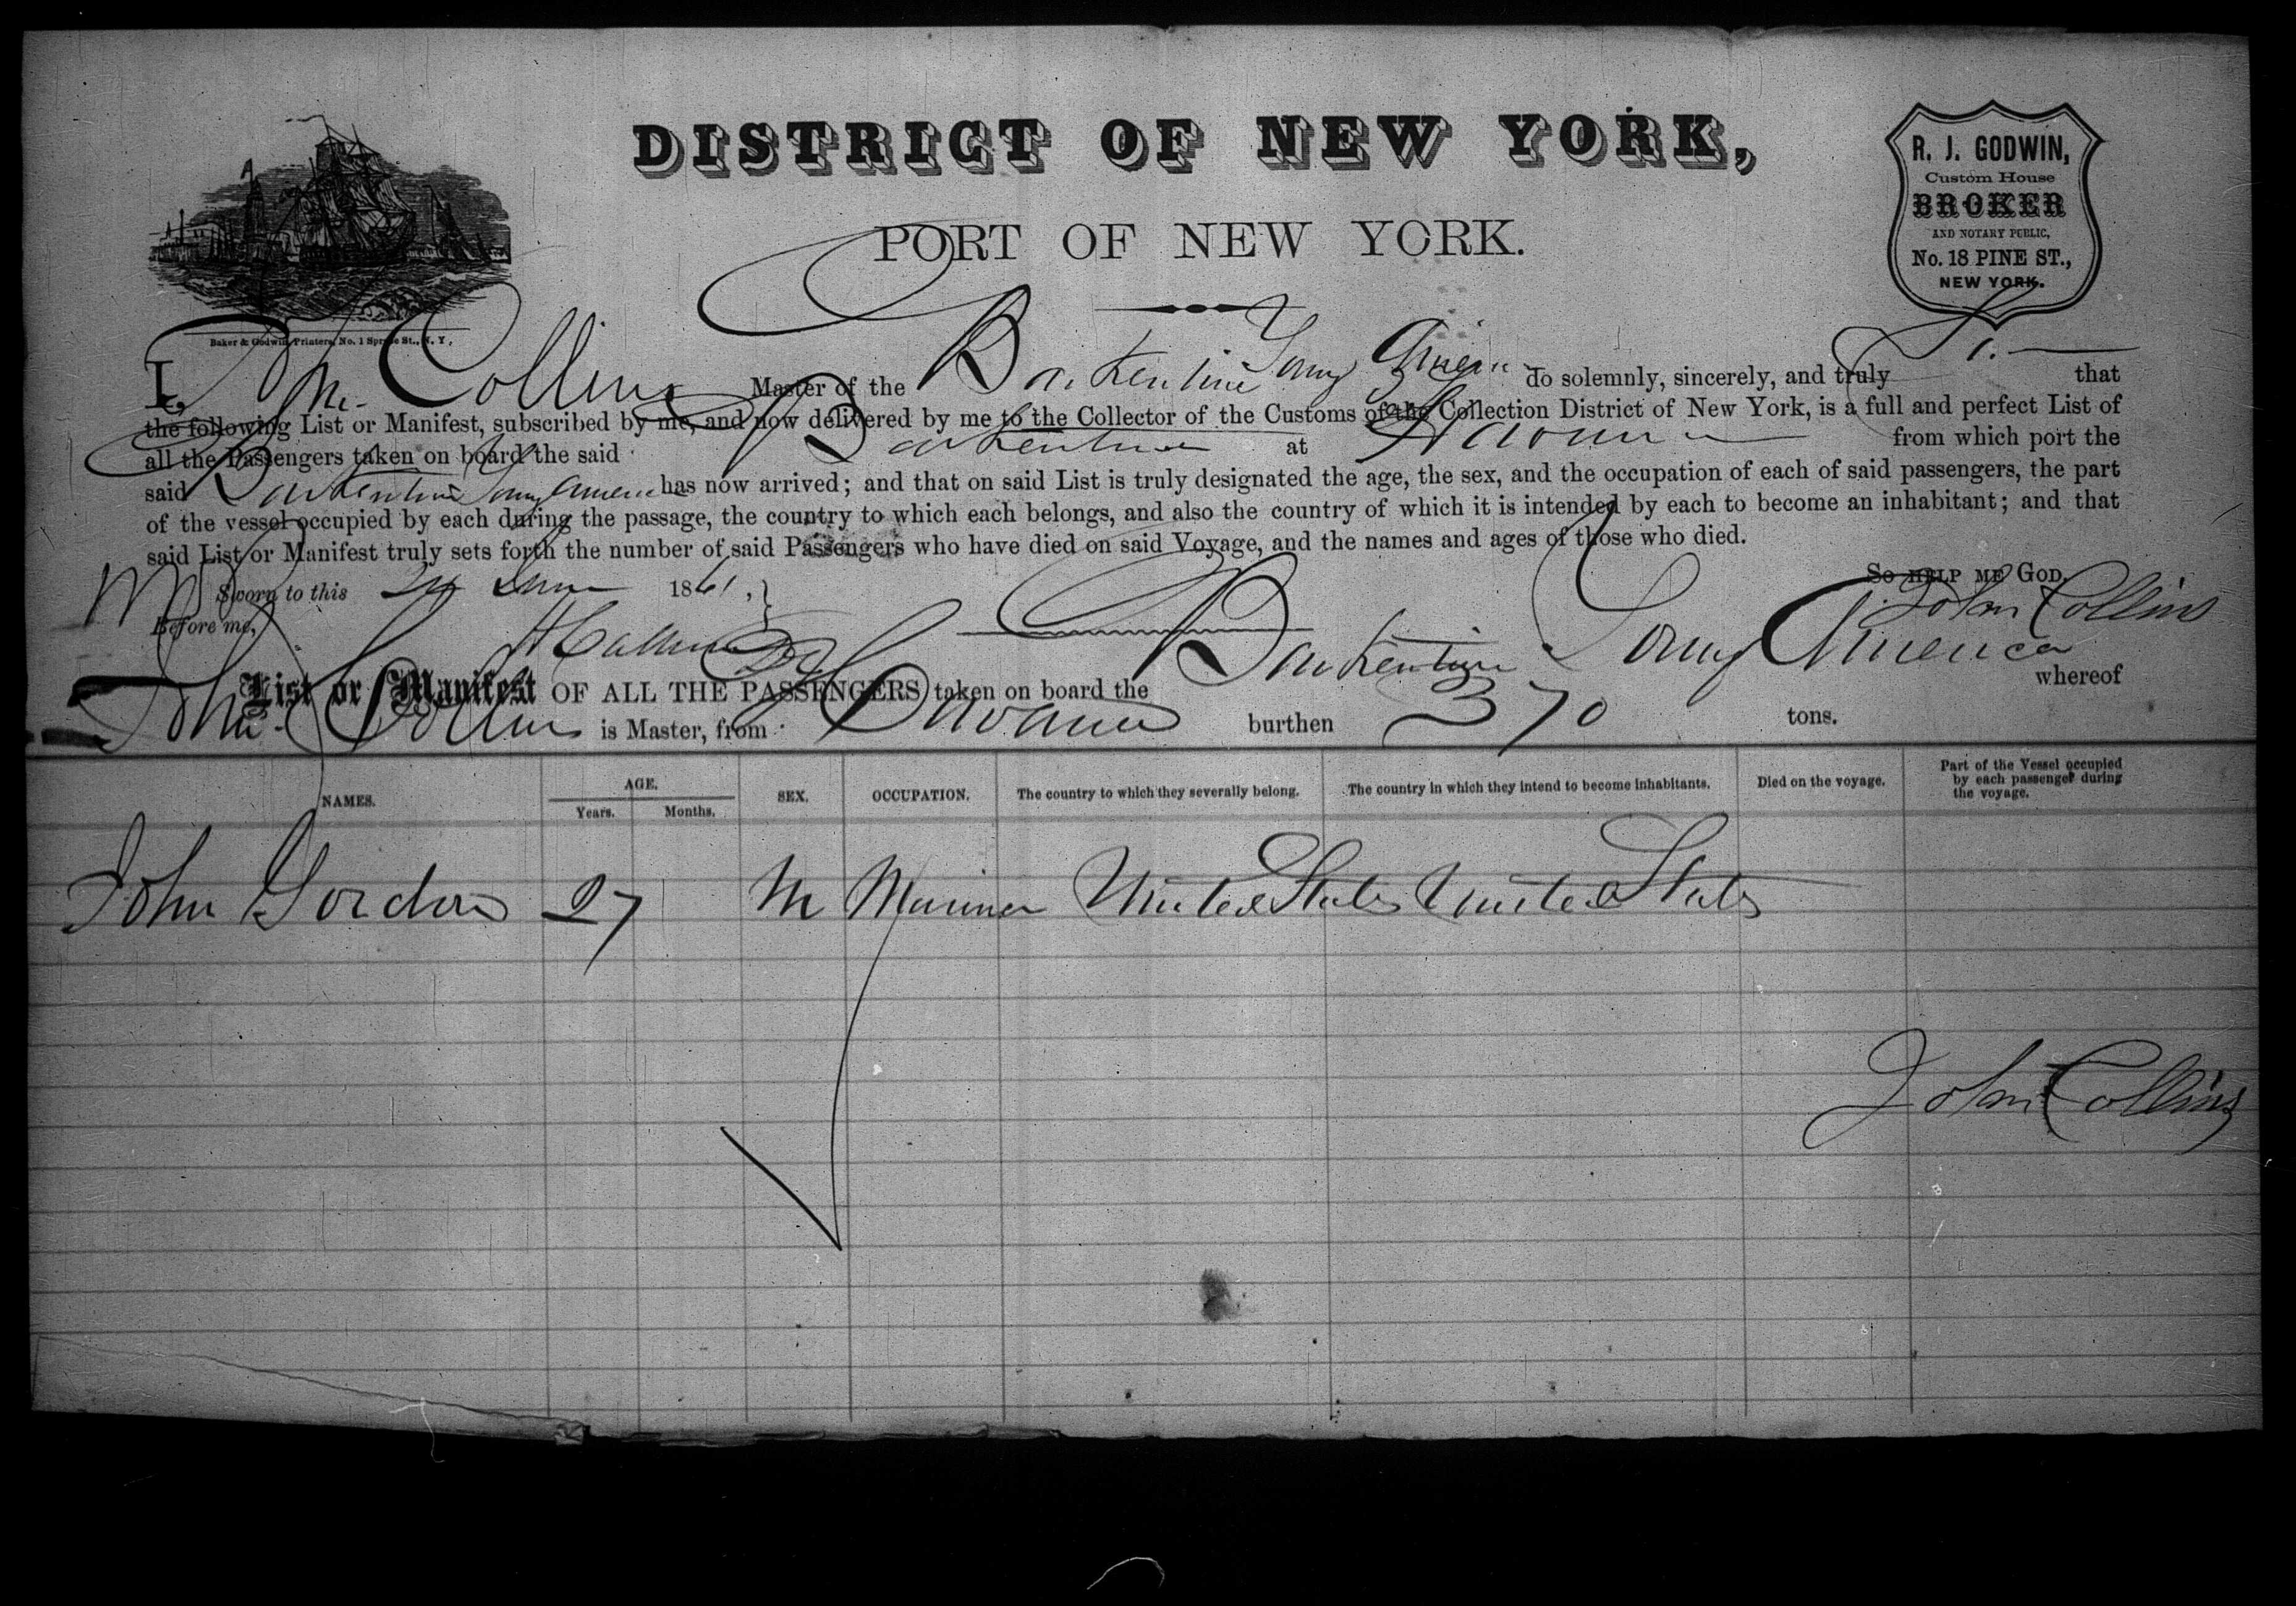 DISTRICT OF NEW YORK,
PORT OF NEW YORK.
R. J. GODWIN,
Custom House
BROKER
AND NOTARY PUBLIC,
No. 18 PINE ST.,
NEW YORK.
Baker & Godwin, Printers, No. 1 Spruce St., N. Y,
I, Jno. Collins Master of the Barkentine Young America do solemnly, sincerely, and truly that
the following List or Manifest, subscribed by me, and now delivered by me to the Collector of the Customs of the Collection District of New York, is a full and perfect List of
all the Passengers taken on board the said Barkentine at Havana from which port the
said Barkentine Young America has now arrived; and that on said List is truly designated the age, the sex, and the occupation of each of said passengers, the part
of the vessel occupied by each during the passage, the country to which each belongs, and also the country of which it is intended by each to become an inhabitant; and that
said List or Manifest truly sets forth the number of said Passengers who have died on said Voyage, and the names and ages of those who died.
So HELP ME GOD.
Sworn to this 24 June 1861,
John Collins
Before me,
List or Manifest OF ALL THE PASSENGERS taken on board the Barkentine Young America whereof
John Collins is Master, from Havana burthen 370 tons.
NAMES. AGE. Years. Months. SEX. OCCUPATION. The country to which they severally belong. The country in which they intend to become inhabitants. Died on the voyage. Part of the Vessel occupied by each passenger during the voyage.
John Gordon 27 M Mariner United States United States
John Collins